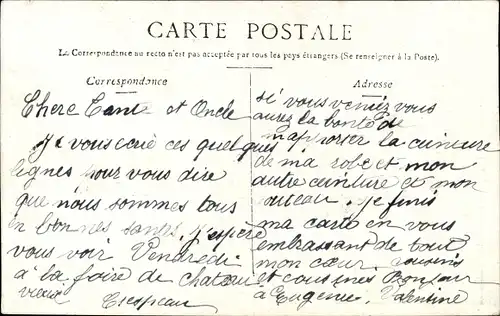 CARTE POSTALE
La Correspondance au recto n'est pas acceptée par tous les pays étrangers (Se renseigner à la Poste).
Correspondance
Chere Tante et Oncle
Je vous ecrie ces quelques
lignes pour vous dire
que nous sommes tous
en bonnes santés, j'espere
vous voir Vendredi
à la foire de chateau
vieux
Adresse
si vous veniez vous
aurez la bonté de
m'apporter la ceinture
de ma robe et mon
autre ceinture et mon
Je finis
ma carte en vous
embrassant de tout
mon cœur. cousins
et cousines Bonjour
à Eugenie. Valentine